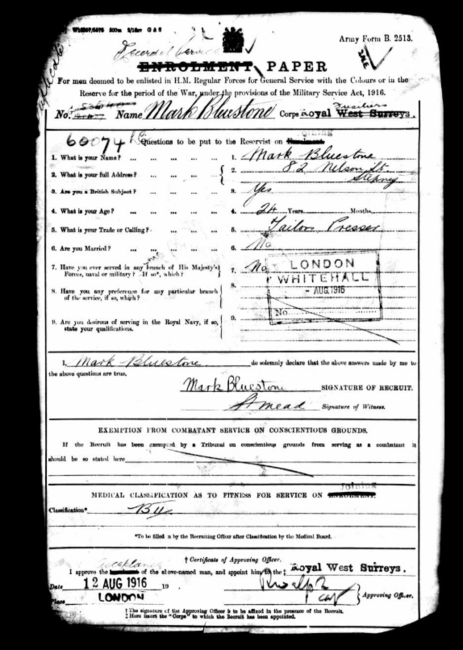 Army Form B. 2513.
ENROLMENT PAPER
For men deemed to be enlisted in H.M. Regular Forces for General Service with the Colours or in the
Reserve for the period of the War, under the provisions of the Military Service Act, 1916.
No. Name Mark Bluestone Corps Royal West Surreys.
60074 Questions to be put to the Reservist on
1. What is your Name? 1. Mark Bluestone
2. What is your full Address? 2. 82 Nelson St.
Stepney
3. Are you a British Subject? 3. Yes
4. What is your Age? 4. 24 Years Months
5. What is your Trade or Calling? 5. Tailor Presser
6. Are you Married? 6. No
7. Have you ever served in any branch of His Majesty's
Forces, naval or military? If so*, which? 7. No
8. Have you any preference for any particular branch
of the service, if so, which? 8.
9. Are you desirous of serving in the Royal Navy, if so,
state your qualifications. 9.
LONDON
WHITEHALL
- AUG 1916
No.
I, Mark Bluestone do solemnly declare that the above answers made by me to
the above questions are true.
Mark Bluestone SIGNATURE OF RECRUIT.
Signature of Witness.
EXEMPTION FROM COMBATANT SERVICE ON CONSCIENTIOUS GROUNDS.
If the Recruit has been exempted by a Tribunal on conscientious grounds from serving as a combatant it
should be so stated here
MEDICAL CLASSIFICATION AS TO FITNESS FOR SERVICE ON
Classification*
*To be filled in by the Recruiting Officer after Classification by the Medical Board.
† Certificate of Approving Officer.
I approve the of the above-named man, and appoint him to the ‡ Royal West Surreys.
Date 12 AUG 1916 19
Place LONDON Approving Officer.
† The signature of the Approving Officer is to be affixed in the presence of the Recruit.
‡ Here insert the "Corps" to which the Recruit has been appointed.